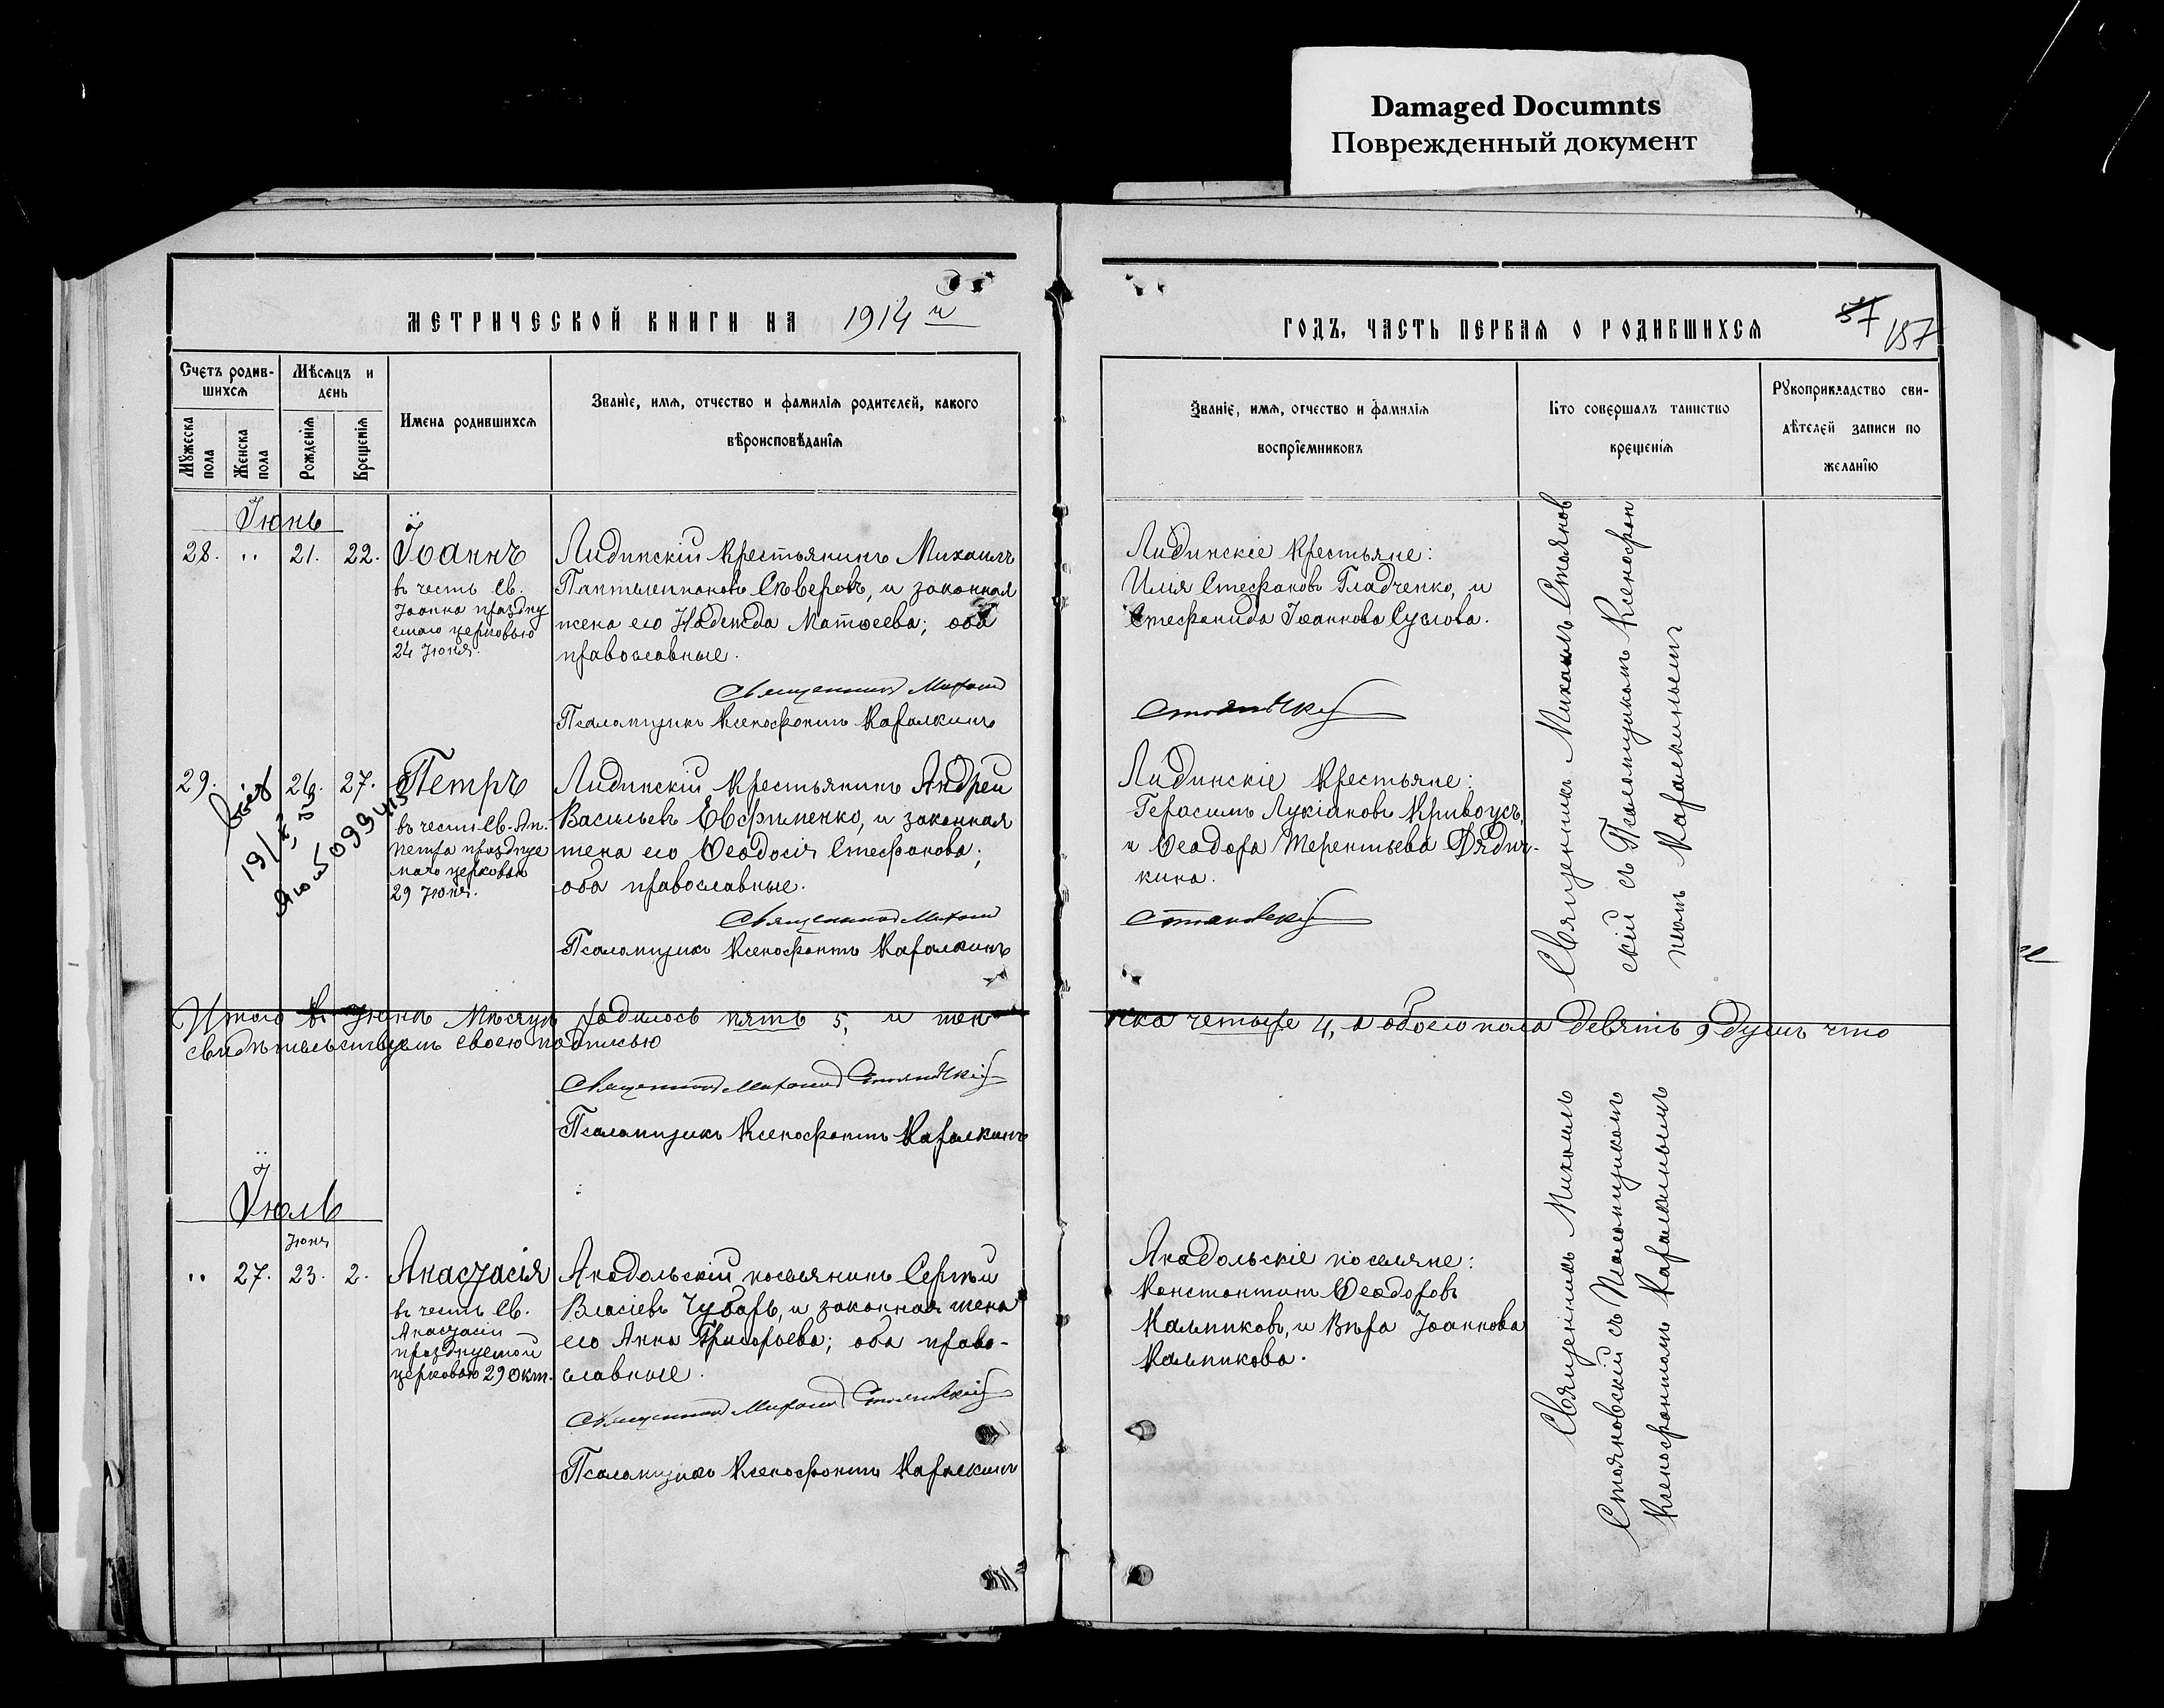 Damaged Documnts
Поврежденный документ
МЕТРИЧЕСКОЙ КНИГИ НА 1914 й
ГОДЪ, ЧАСТЬ ПЕРВАЯ О РОДИВШИХСЯ
57 157
Счетъ родив-
шихся
Мѣсяцъ и
день
Мужеска
пола
Женска
пола
Рожденія
Крещенія
Имена родившихся
Званіе, имя, отчество и фамилія родителей, какого
вѣроисповѣданія
Званіе, имя, отчество и фамилія
воспріемниковъ
Кто совершалъ таинство
крещенія
Рукоприкладство сви-
дѣтелей записи по
желанію
Іюнь
28. " 21. 22. Іоаннъ
въ честь Св.
Іоанна празdну
емаго церковью
24 Іюня.
Лидинскій крестьянинъ Михаилъ
Пантылимоновъ Сѣверовъ, и законная
жена его Надежда Матѳеева; оба
православные.
Священникъ Михаил
Псаломщикъ Ксенофонтъ Каралкинъ
Лидинскіе крестьяне:
Илія Стефановъ Гладченко, и
Стефанида Іоаннова Суслова.
Стояновскій
Священникъ Михаилъ Стоянов
скій съ Псаломщикомъ Ксенофон
томъ Каралкинымъ
29. 26. 27. Петръ
въ честь Св. Ап.
Петра праздnуе
маго церковью
29 Іюня.
19/X
ЯЮ 5 099415
Лидинскій крестьянинъ Андрей
Васильевъ Евфименко, и законная
жена его Ѳеодосія Стефанова;
оба православные.
Священникъ Михаил
Псаломщикъ Ксенофонтъ Каралкинъ
Лидинскіе крестьяне:
Герасимъ Лукіановъ Кривоусъ,
и Ѳеодора Терентьева Дядич-
кина.
Стояновскій
Итого въ Іюнѣ мѣсяцѣ родилось пять 5, и жен
ска четыре 4, а обоего пола девять 9 душъ что
свидѣтельствуемъ своею подписью
Священникъ Михаил Стояновскій
Псаломщикъ Ксенофонтъ Каралкинъ
Іюль
Іюня
" 27. 23. 2. Анастасія
въ честь Св.
Анастасіи
празднуемой
церковью 29 Окт.
Анадольскій поселянинъ Сергѣй
Власіевъ Чубарь, и законная жена
его Анна Григорьева; оба право-
славные.
Священникъ Михаил Стояновскій
Псаломщикъ Ксенофонтъ Каралкинъ
Анадольскіе поселяне:
Константинъ Ѳеодоровъ
Калмыковъ, и Вѣра Іоаннова
Калмыкова.
Священникъ Михаилъ
Стояновскій съ Псаломщикомъ
Ксенофонтомъ Каралкинымъ